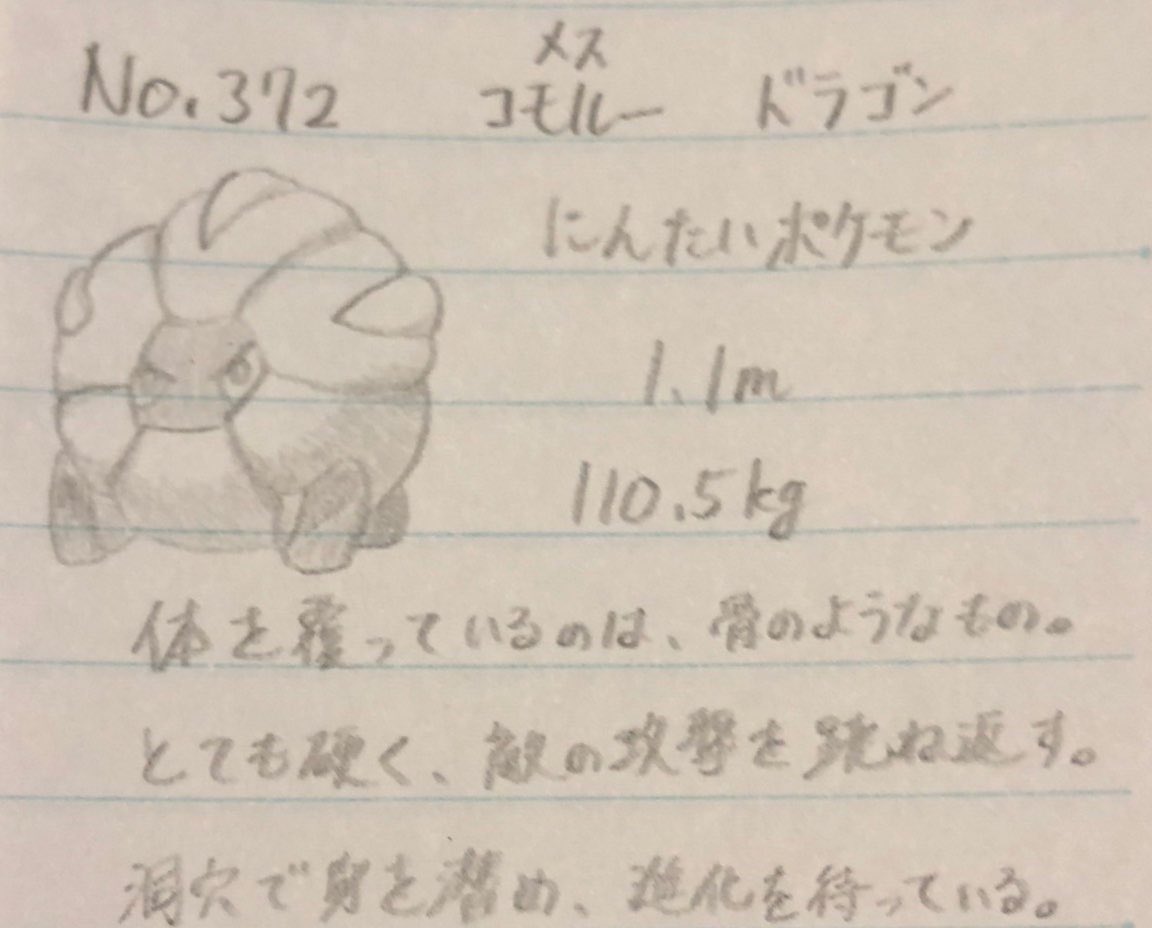 メス
No.372 コモルー ドラゴン
にんたいポケモン
1.1m
110.5kg
体を覆っているのは、骨のようなもの。
とても硬く、敵の攻撃を跳ね返す。
洞穴で身を潜め、進化を待っている。